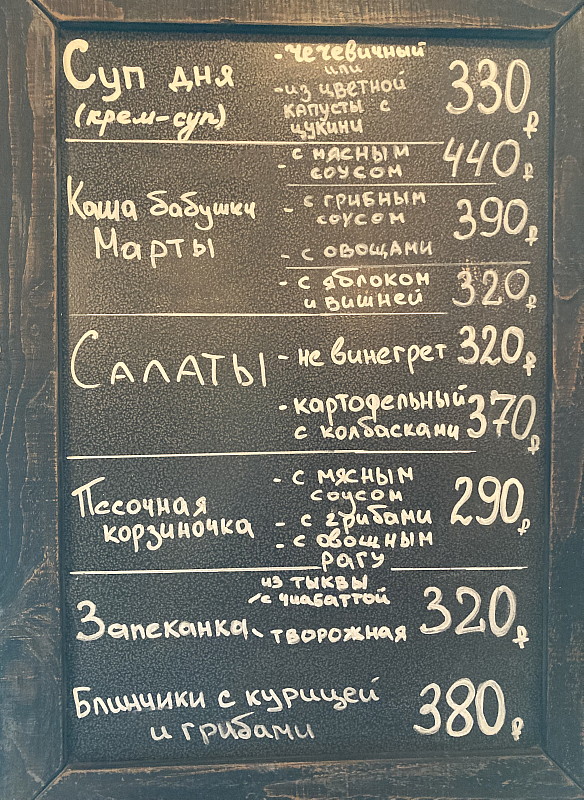 Суп дня
(крем-суп)
- чечевичный
или
- из цветной
капусты с
цукини
330₽
Каша бабушки
Марты
- с мясным
соусом
440₽
- с грибным
соусом
- с овощами
390₽
- с яблоком
и вишней
320₽
Салаты
- не винегрет 320₽
- картофельный
с колбасками 370₽
Песочная
корзиночка
- с мясным
соусом
- с грибами
- с овощным
рагу
290₽
Запеканка
из тыквы
с чиабаттой
творожная
320₽
Блинчики с курицей
и грибами
380₽